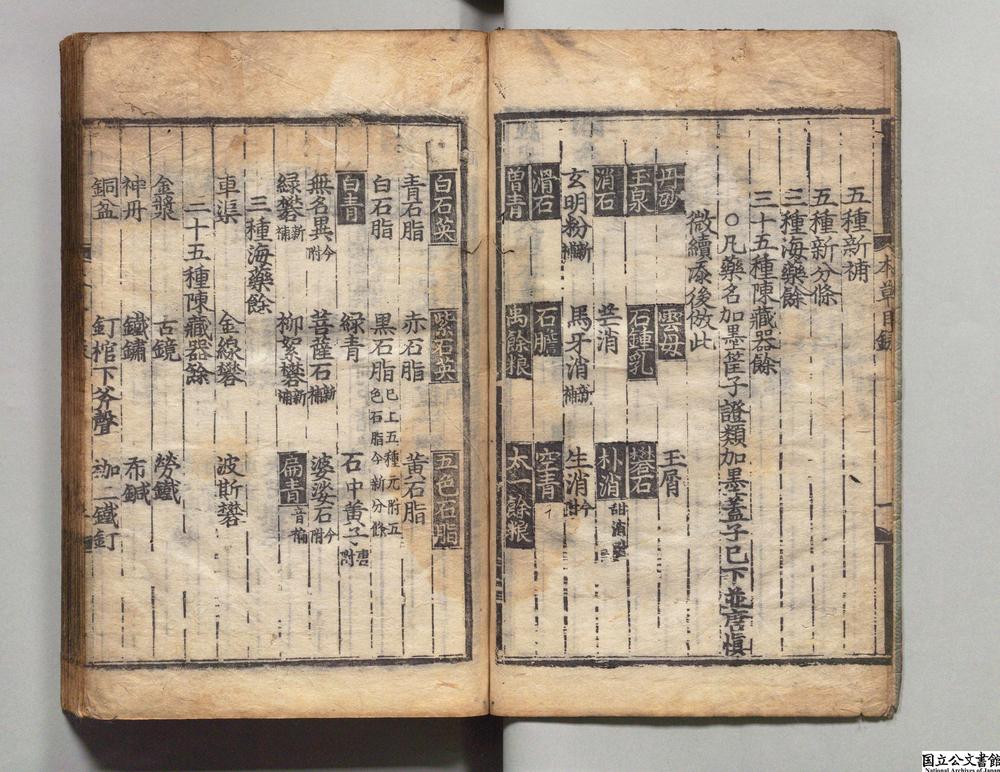 五種新補
五種新分條
三種海藥餘
三十五種陳藏器餘
○凡藥名加墨筐子證類加墨蓋子已下並唐慎
微續添後倣此
丹砂 雲母 玉屑
玉泉 石鍾乳 礬石
消石 芒消 朴消甜消附
玄明粉新補 馬牙消新補 生消今附
滑石 石膽 空青
曽青 禹餘粮 太一餘粮
本草目錄
白石英 紫石英 五色石脂
青石脂 赤石脂 黃石脂
白石脂 黑石脂已上五種元附五色石脂今新分條
白青 綠青 石中黃子唐附
無名異今附 菩薩石新補 婆娑石今附
綠礬新補 柳絮礬新補 扁青音褊
三種海藥餘
車渠 金線礬 波斯礬
二十五種陳藏器餘
金漿 古鏡 勞鐵
神丹 鐵鏽 布鍼
銅盆 釘棺下斧聲 枷上鐵釘
国立公文書館
National Archives of Japan